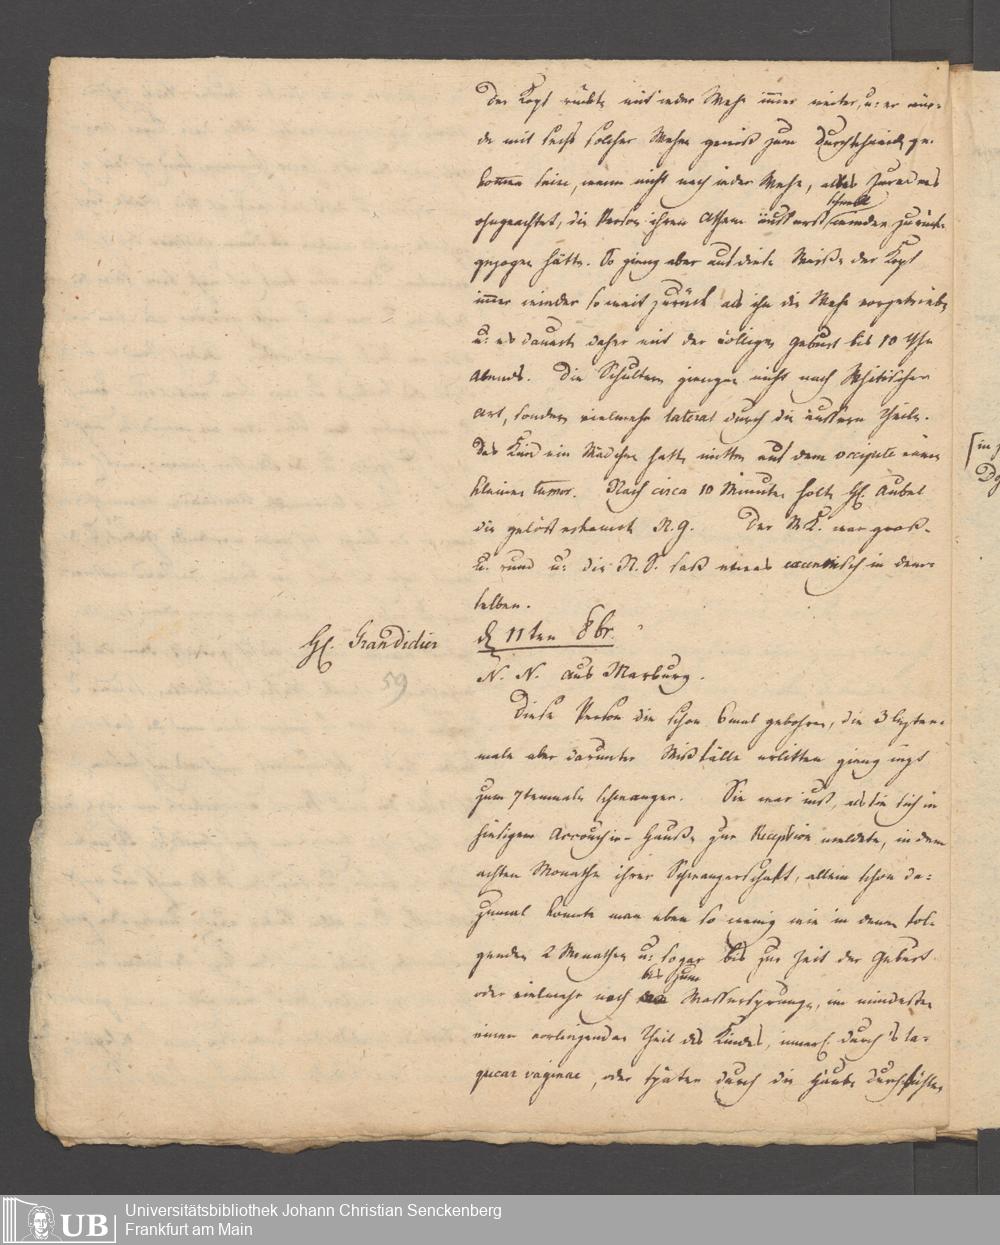 Der Kopf rückte mit jeder Wehe immer weiter, u: er wür-
de mit sechs solcher Wehen gewiß zum Durchschneid. ge-
kommen sein, wenn nicht nach jeder Wehe, alles Zuredens
ohngeachtet, die Person ihren Athem äusserst schnell wieder zurück-
gezogen hätte. So gieng aber auf diese Weiße der Kopf
immer wieder so weit zurück als ihn die Wehe vorgetrieben
u: es dauerte daher mit der völligen Geburt bis 10 Uhr
Abends. Die Schultern giengen nicht nach
Art, sondern vielmehr lateral durch die äussern Theile.
Das Kind ein Mädchen hatte mitten auf dem occipite einen
kleinen tumor. Nach circa 10 Minuten holte H. Aubel
die gelöst erkannte N. G. Der M. K. war groß
u. rund u: die N. S. saß etwas excentrisch in dem-
selben.
H. Grandidier
59
d. 11ten 8br.
N. N. aus Marburg.
Diese Person die schon 6mal gebohren, die 3 leztern-
male aber darunter Mißfälle erlitten gieng izt
zum 7temmale schwanger. Sie war just, als sie sich in
hiesigem Accouchir-Hauße zur Reception meldete, in dem
achten Monathe ihrer Schwangerschaft, allein schon da-
zumal konnte man eben so wenig wie in denen fol-
genden 2 Monathen u: sogar bis zur Zeit der Geburt
oder vielmehr noch bis zum Wassersprunge, im mindesten
einen vorliegenden Theil des Kindes, durch's la-
quear vaginae, oder später durch die Häute durchfühlen